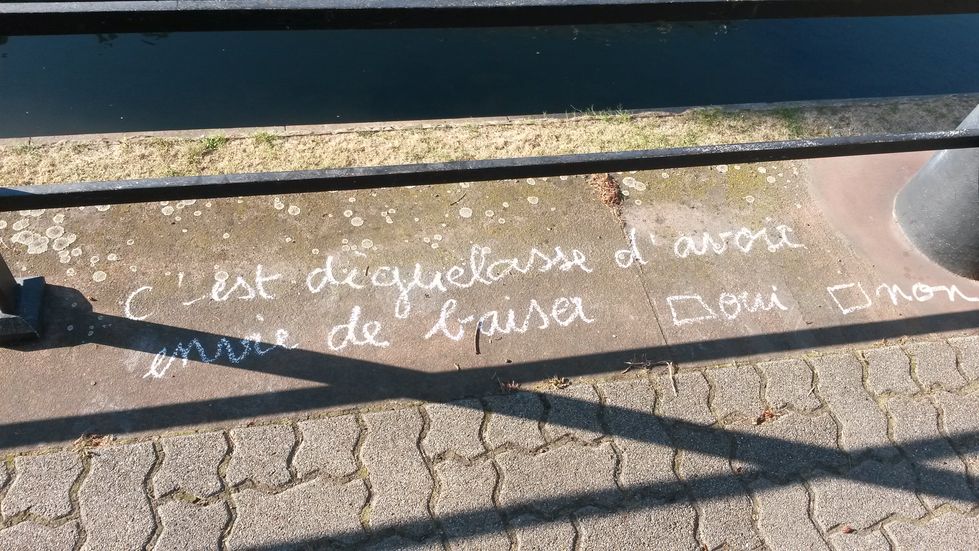 c'est dèguelasse d'avoir
envie de baiser □oui □non